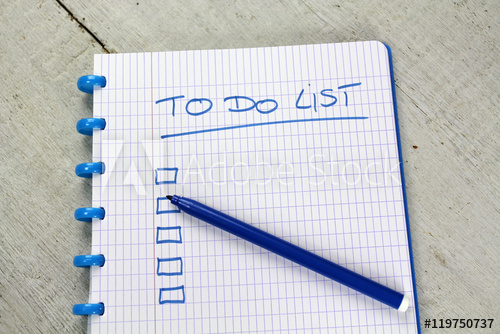 TO DO LIST
Adobe Stock
119750737